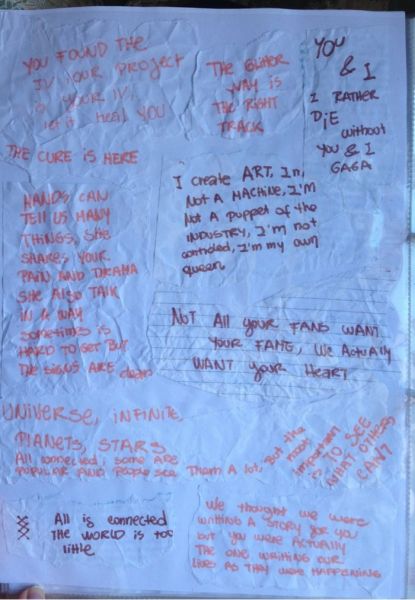 YOU FOUND THE
IV YOUR PROJECT
YOUR IV,
let it Heal YOU
THE GLITTER
WAY IS
THE RIGHT
TRACK
YOU
& I
I RATHER
DiE
without
YOU & I
GAGA
THE CURE is HERE
I create ART, I'm
Not A MACHINE, I'M
Not A puppet of the
INDUSTRY, I'm not
controled, I'm my own
queen
HANDS CAN
TELL US MANY
THINGS, SHE
SHARES YOUR
PAIN AND DRAMA
SHE Also TALK
IN A WAY
sometimes is
HARD TO GET BUT
THE SIGNS ARE clear
NOT All your FANS WANT
YOUR FAME, We Actually
WANT your HEART
UNIVERSE, iNFINITE,
PLANETS, STARS
All connected, some ARE
POPULAR AND People see Them A lot,
But the
most
important
is TO SEE
WHAT OTHERS
CAN'T
All is connected
THE WORLD is too
little
We thought we were
writing A STORY for you
but you were ACTUALLY
THE ONE WRITING OUR
LIVES AS THEY WERE HAPPENING